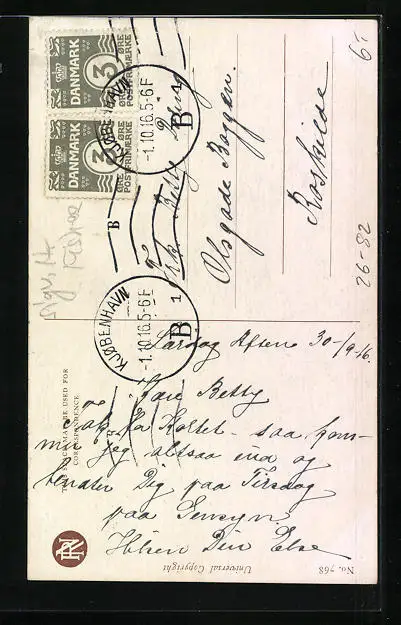 DANMARK
3
ØRE
POSTFRIMÆRKE
DANMARK
3
ØRE
POSTFRIMÆRKE
KJØBENHAVN
-1.10.16.5-6 F
B
KJØBENHAVN
-1.10.16.5-6 F
1
B
B
Frk. Betty
Olsgade
Roskilde
6,-
26-82
Lørdag Aften 30-/9-16.
Kære Betty
Tak for Kortet - saa kom-
mer jeg altsaa ind og
venter Dig paa Tirsdag
paa Gensyn.
Hilsen Din Else
THIS SPACE MAY BE USED FOR
CORRESPONDENCE
Universal Copyright
No. 768